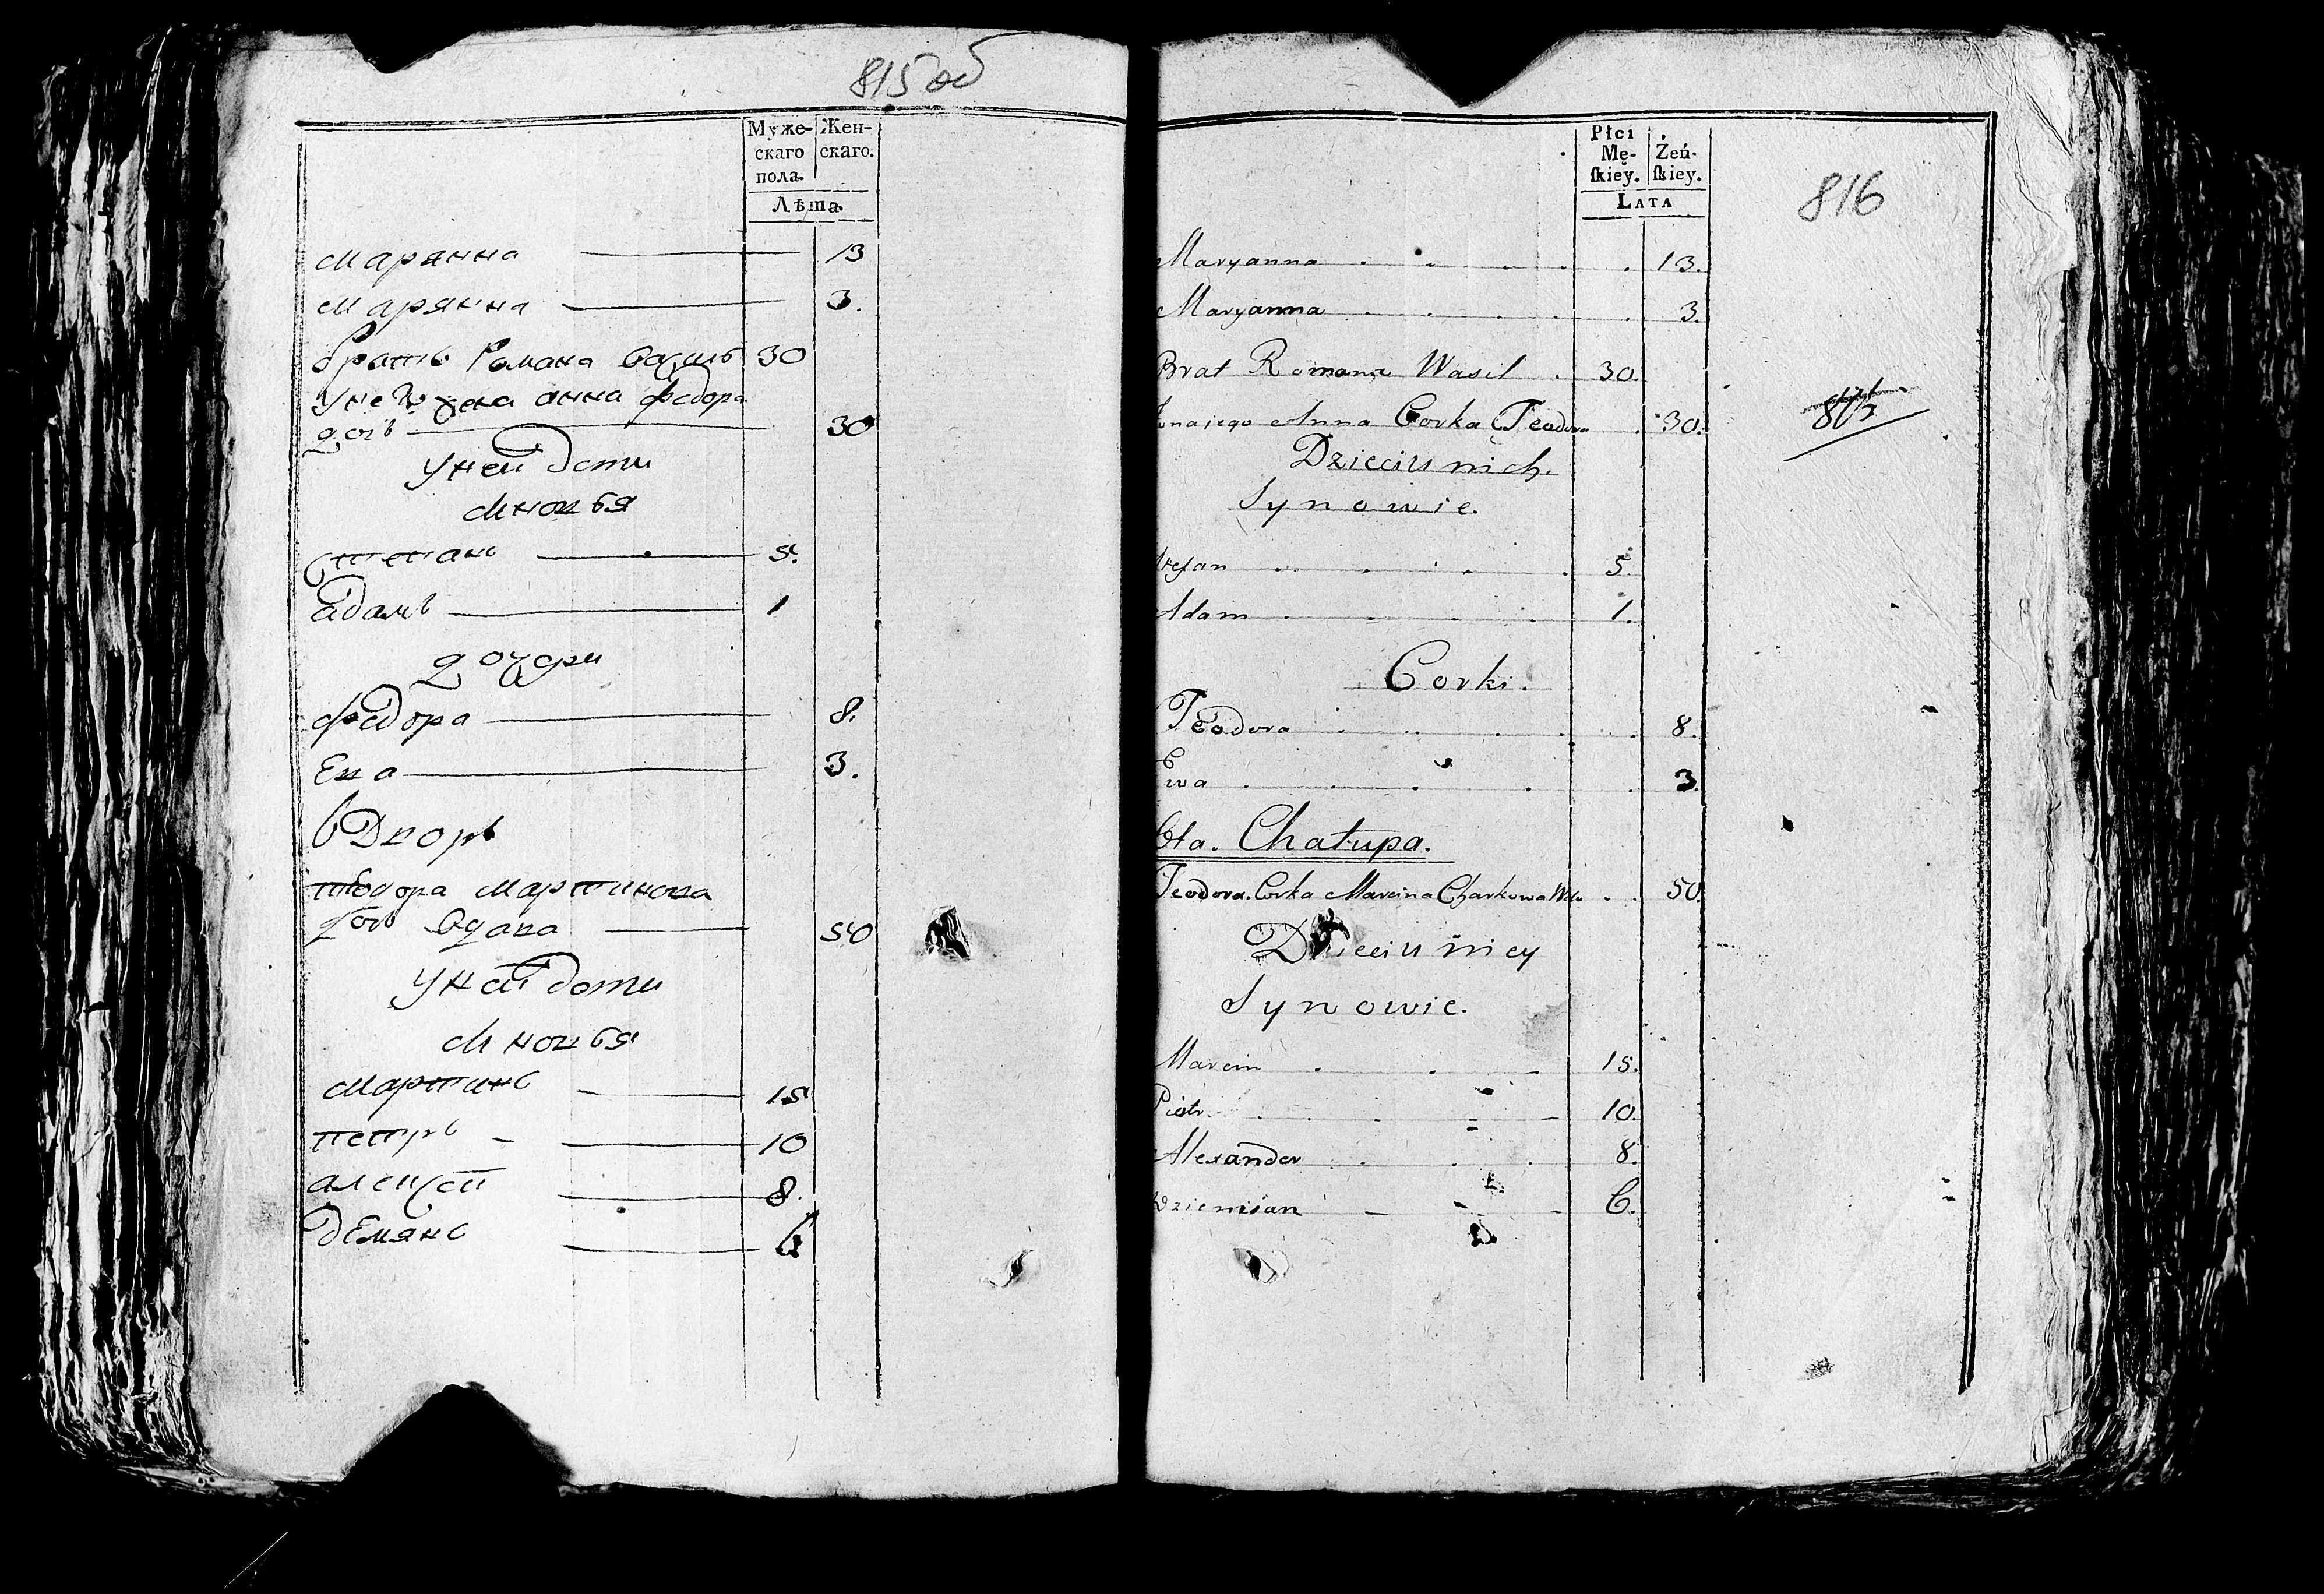 815 об
Муже-
скаго
пола.
Жен-
скаго.
Лѣта.
Марянна 13
Марянна 3.
братъ Романа Василь 30
у него жена анна федора
дочь 30
у ней дети
сыновья
Степанъ 5.
адамъ 1
дочери
федора 8.
Ева 3.
вдворѣ
теодора Мартинова
дочь вдава 50
у ней дети
сыновья
Мартинъ 15
петръ 10
алексей 8.
демянъ 6
Płci
Mę-
ſkiey.
Żeń-
ſkiey.
LATA
816
Maryanna 13.
Maryanna 3.
Brat Romana Wasil 30.
Żona jego Anna Corka Teodora 30.
Dzieci u nich.
Synowie.
Stefan 5.
Adam 1.
Corki.
Teodora 8.
Ewa 3.
6ta. Chałupa.
Teodora Corka Marcina Charkowa Wdo 50.
Dzieci u niey
Synowie.
Marcin 15.
Piotr 10.
Alexander 8.
Dziemian 6.